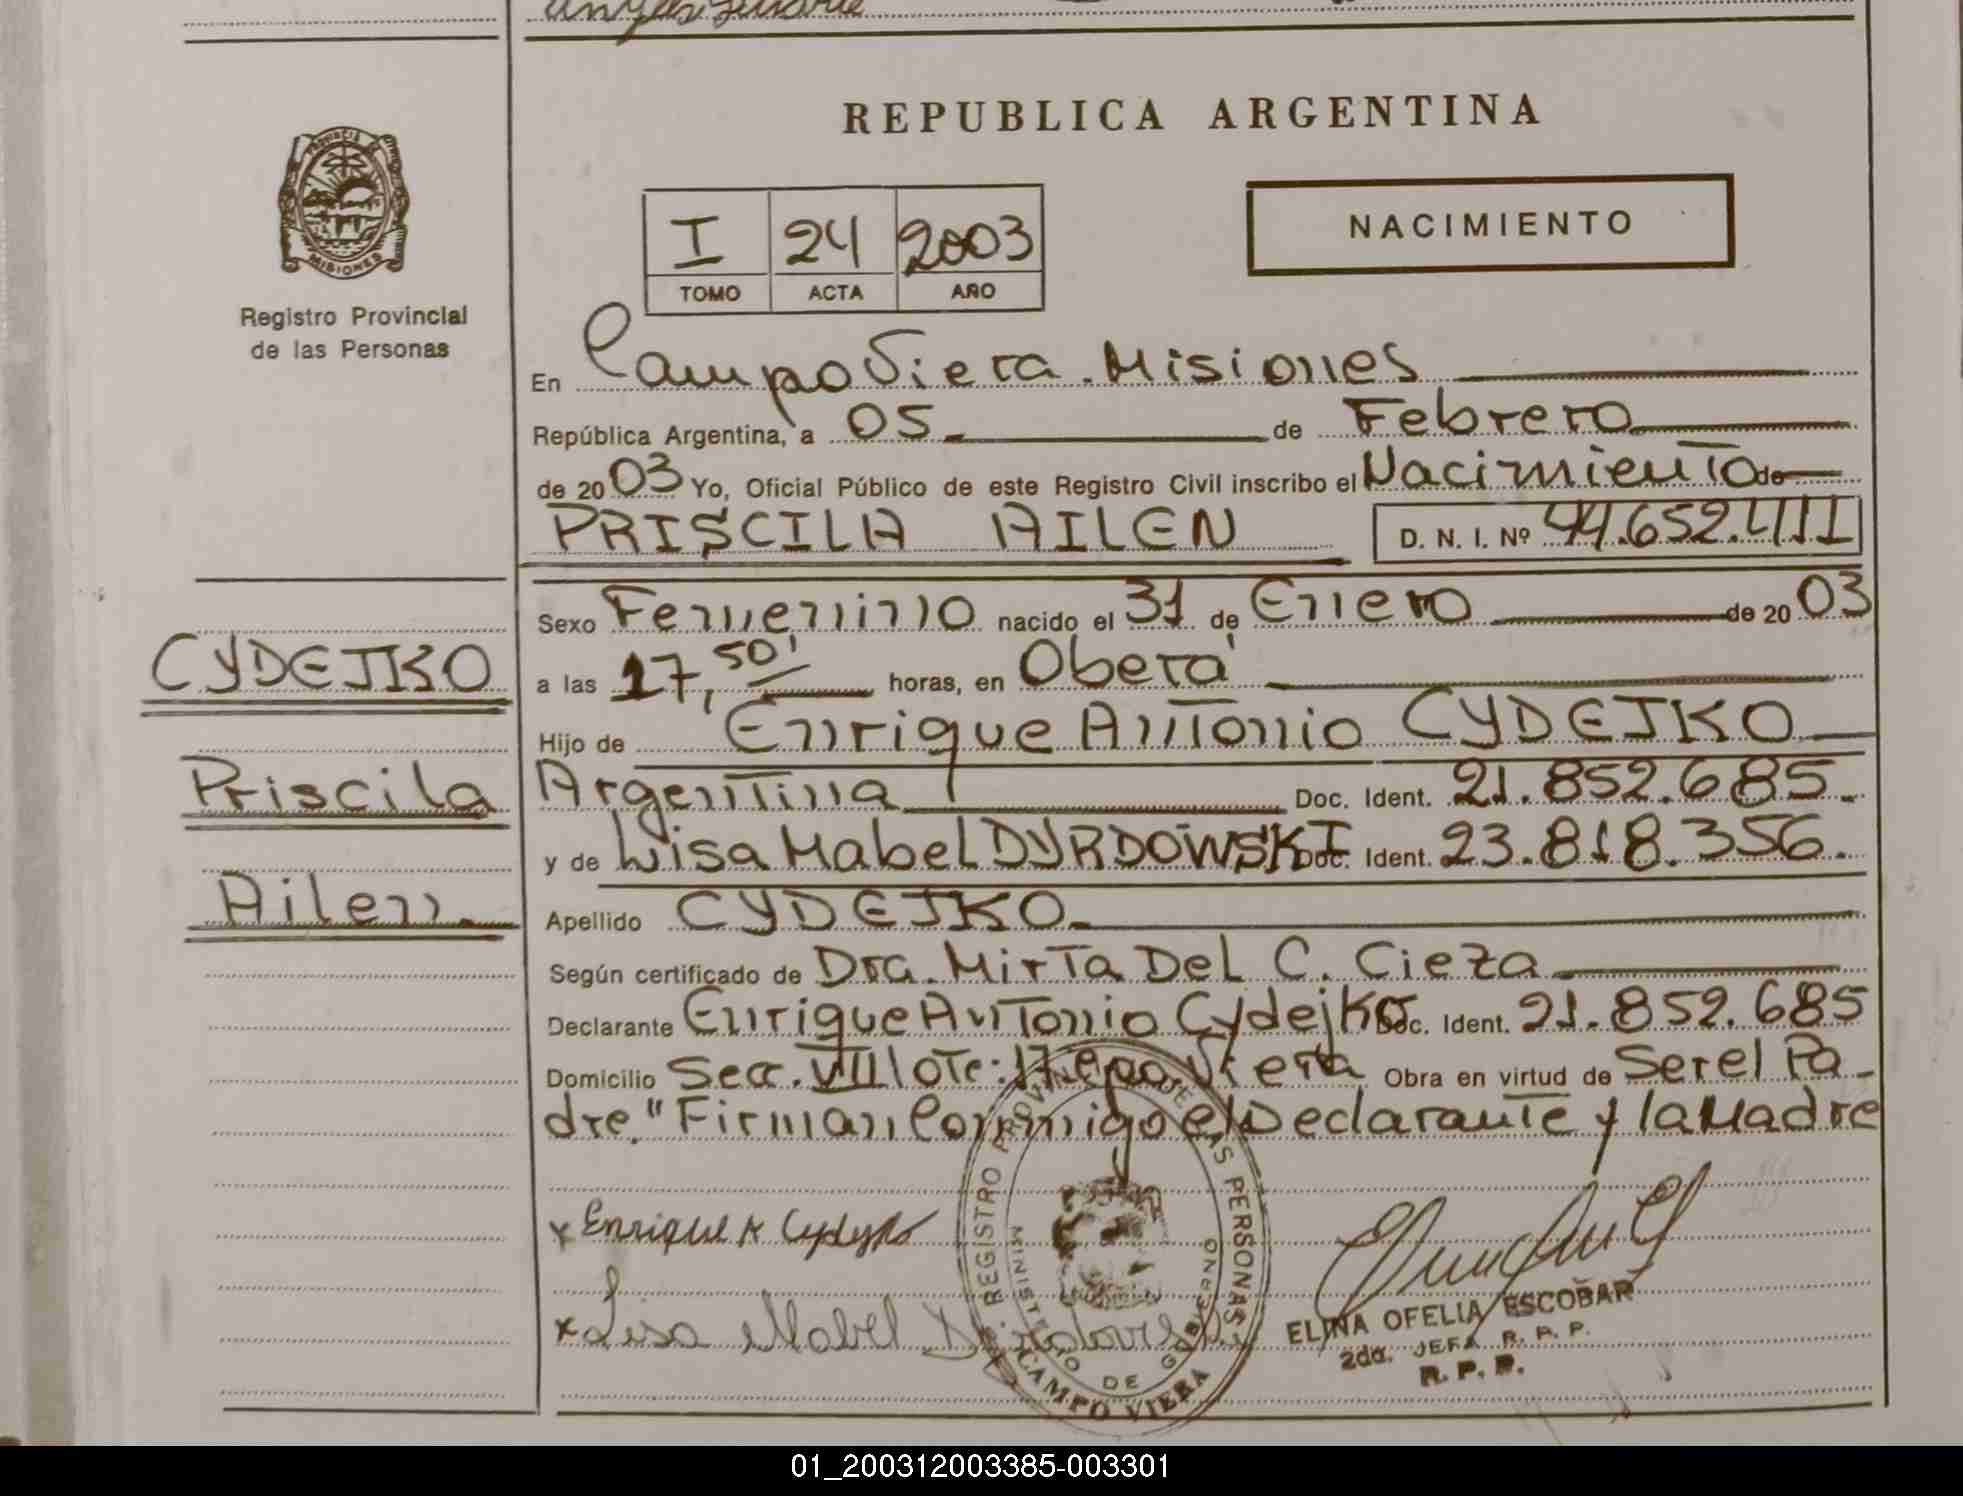 REPUBLICA ARGENTINA
PROVINCIA DE
MISIONES
Registro Provincial
de las Personas
I 24 2003
TOMO ACTA AÑO
NACIMIENTO
En Campo Viera. Misiones
República Argentina, a 05 de Febrero
de 2003 Yo, Oficial Público de este Registro Civil inscribo el Nacimiento de
PRISCILA AILEN D. N. I. Nº 44.652.411
Sexo Femenino nacido el 31 de Enero de 2003
CYDEJKO
a las 17,50' horas, en Oberá
Hijo de Enrique Antonio CYDEJKO
Priscila
Argentina Doc. Ident. 21.852.685.
y de Lisa Mabel DYRDOWSKI Doc. Ident. 23.818.356.
Ailen.
Apellido CYDEJKO.
Según certificado de Dra. Mirta Del C. Cieza
Declarante Enrique Antonio Cydejko Doc. Ident. 21.852.685
Domicilio Secc. VIII lote: 17 Cpo. Viera Obra en virtud de Ser el Pa-
dre." Firman Conmigo el Declarante y la Madre
x Enrique A Cydejko
x Lisa Mabel
REGISTRO PROVINCIAL DE LAS PERSONAS
MINISTERIO DE GOBIERNO
CAMPO VIERA
ELINA OFELIA ESCOBAR
2da. JEFA R. R. P.
R. P. P.
01_200312003385-003301